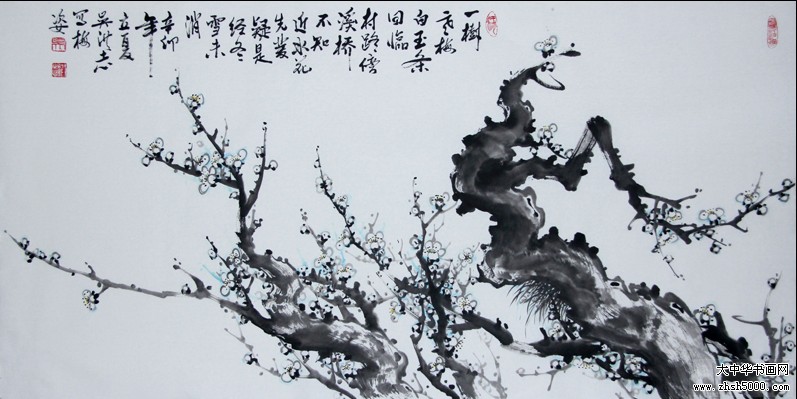 一樹
寒梅
白玉条
回临
村路傍
溪桥
不知
近水花
先發
疑是
经冬
雪未
消
辛卯
年
立夏
吴
写梅
姿
大中华书画网
www.zhsh5000.com